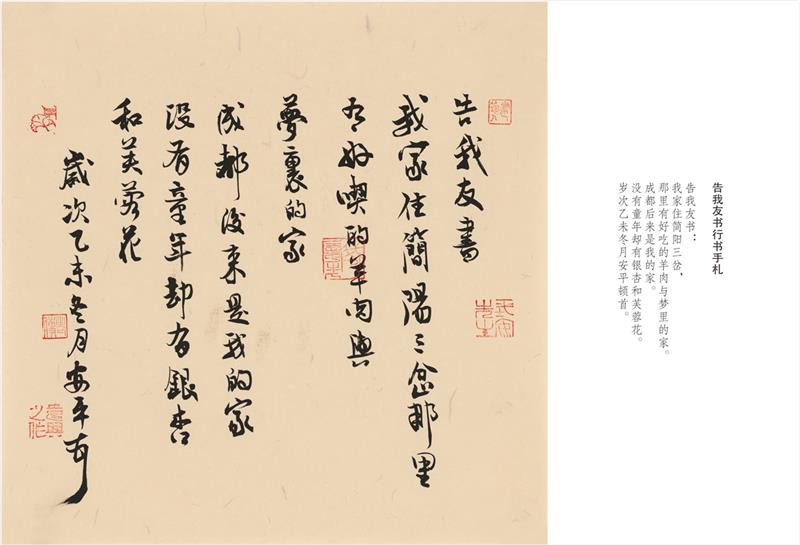 告我友书行书手札
告我友书：
我家住简阳三岔，
那里有好吃的羊肉与梦里的家。
成都后来是我的家。
没有童年却有银杏和芙蓉花。
岁次乙未冬月安平顿首。
告我友書
我家住簡陽三岔那里
有好喫的羊肉與
夢裏的家
成都後来是我的家
没有童年却有銀杏
和芙蓉花
歲次乙未冬月安平頓首